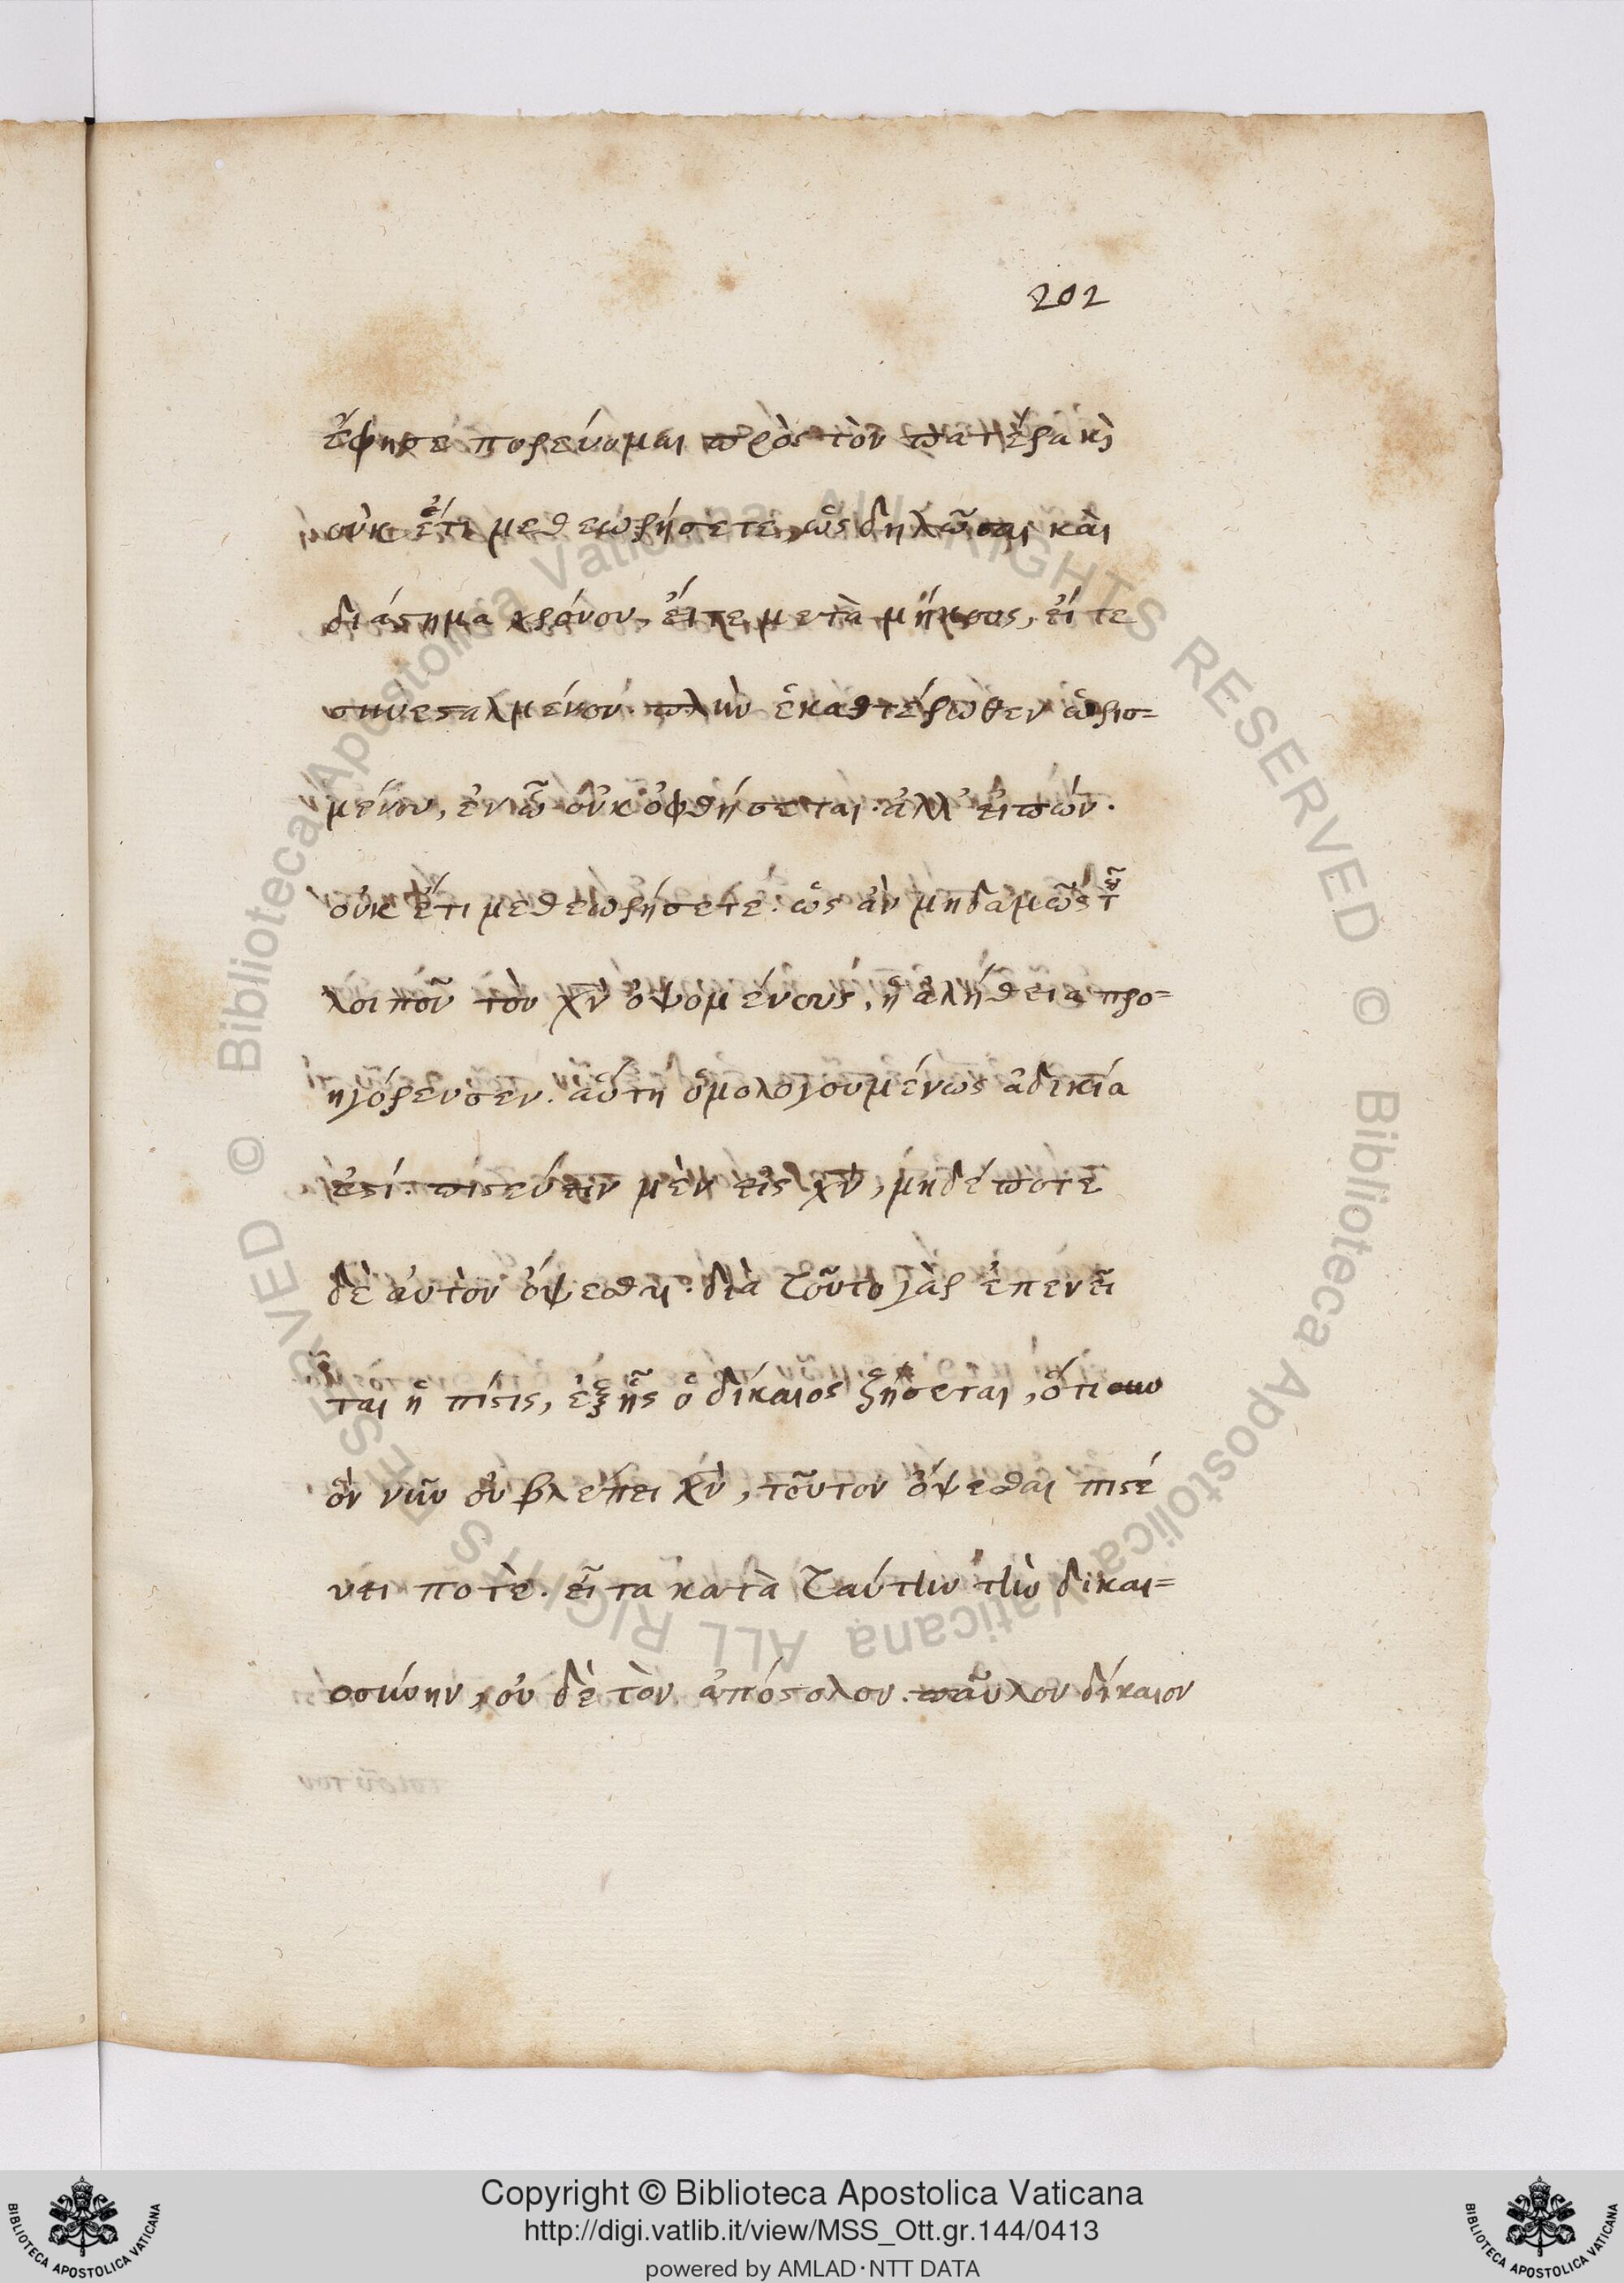 202
ἔφησε πορεύομαι πρὸς τὸν πατέρα κὶ
οὐκ ἔτι με θεωρήσετε, ὡς δηλῶσαι καὶ
διάστημα χρόνου, εἴτε μετὰ μήκους, εἴτε
συνεσταλμένου πλὴν ἑκατέρωθεν ὡρισ=
μένου, ἐν ᾧ οὐκ ὀφθήσεται. ἀλλ' εἰπών.
οὐκ ἔτι με θεωρήσετε. ὡς ἂν μηδαμῶς τοῦ
λοιποῦ τὸν χν ὀψομένους, ἡ ἀλήθεια προ=
ηγόρευσεν. αὕτη ὁμολογουμένως ἀδικία
ἐστί. πιστεύειν μὲν εἰς χν, μηδέποτε
δὲ αὐτὸν ὄψεσθαι. διὰ τοῦτο γὰρ ἐπενεῖ
ται ἡ πίστις, ἐξ ἧς ὁ δίκαιος ζήσεται, ὅτι
ὃν νῦν οὐ βλέπει χν, τοῦτον ὄψεσθαι πιστέ
υει ποτὲ. εἶτα κατὰ ταύτην τὴν δικαι=
οσύνην, οὐδὲ τὸν ἀπόστολον παῦλον δίκαιον
Copyright © Biblioteca Apostolica Vaticana
http://digi.vatlib.it/view/MSS_Ott.gr.144/0413
powered by AMLAD·NTT DATA
BIBLIOTECA APOSTOLICA VATICANA
BIBLIOTECA APOSTOLICA VATICANA
© Biblioteca Apostolica Vaticana ALL RIGHTS RESERVED © Biblioteca Apostolica Vaticana ALL RIGHTS RESERVED